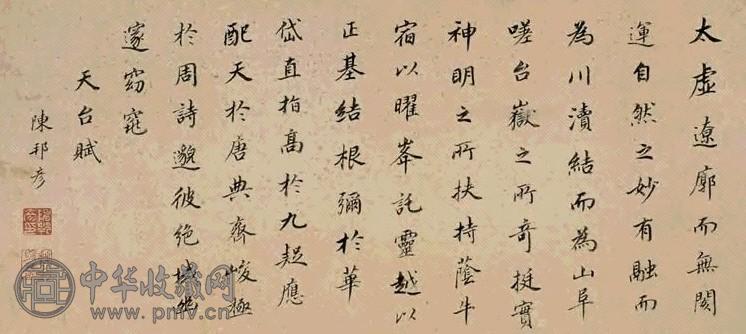 太虛遼廓而無閡
運自然之妙有融而
為川瀆結而為山阜
嗟台嶽之所奇挺實
神明之所扶持蔭牛
宿以曜峯託靈越以
正基結根彌於華
岱直指高於九疑應
配天於唐典齊峻極
於周詩邈彼絕域幽
邃窈窕
天台賦
陳邦彥
中华收藏网
www.pmcv.cn